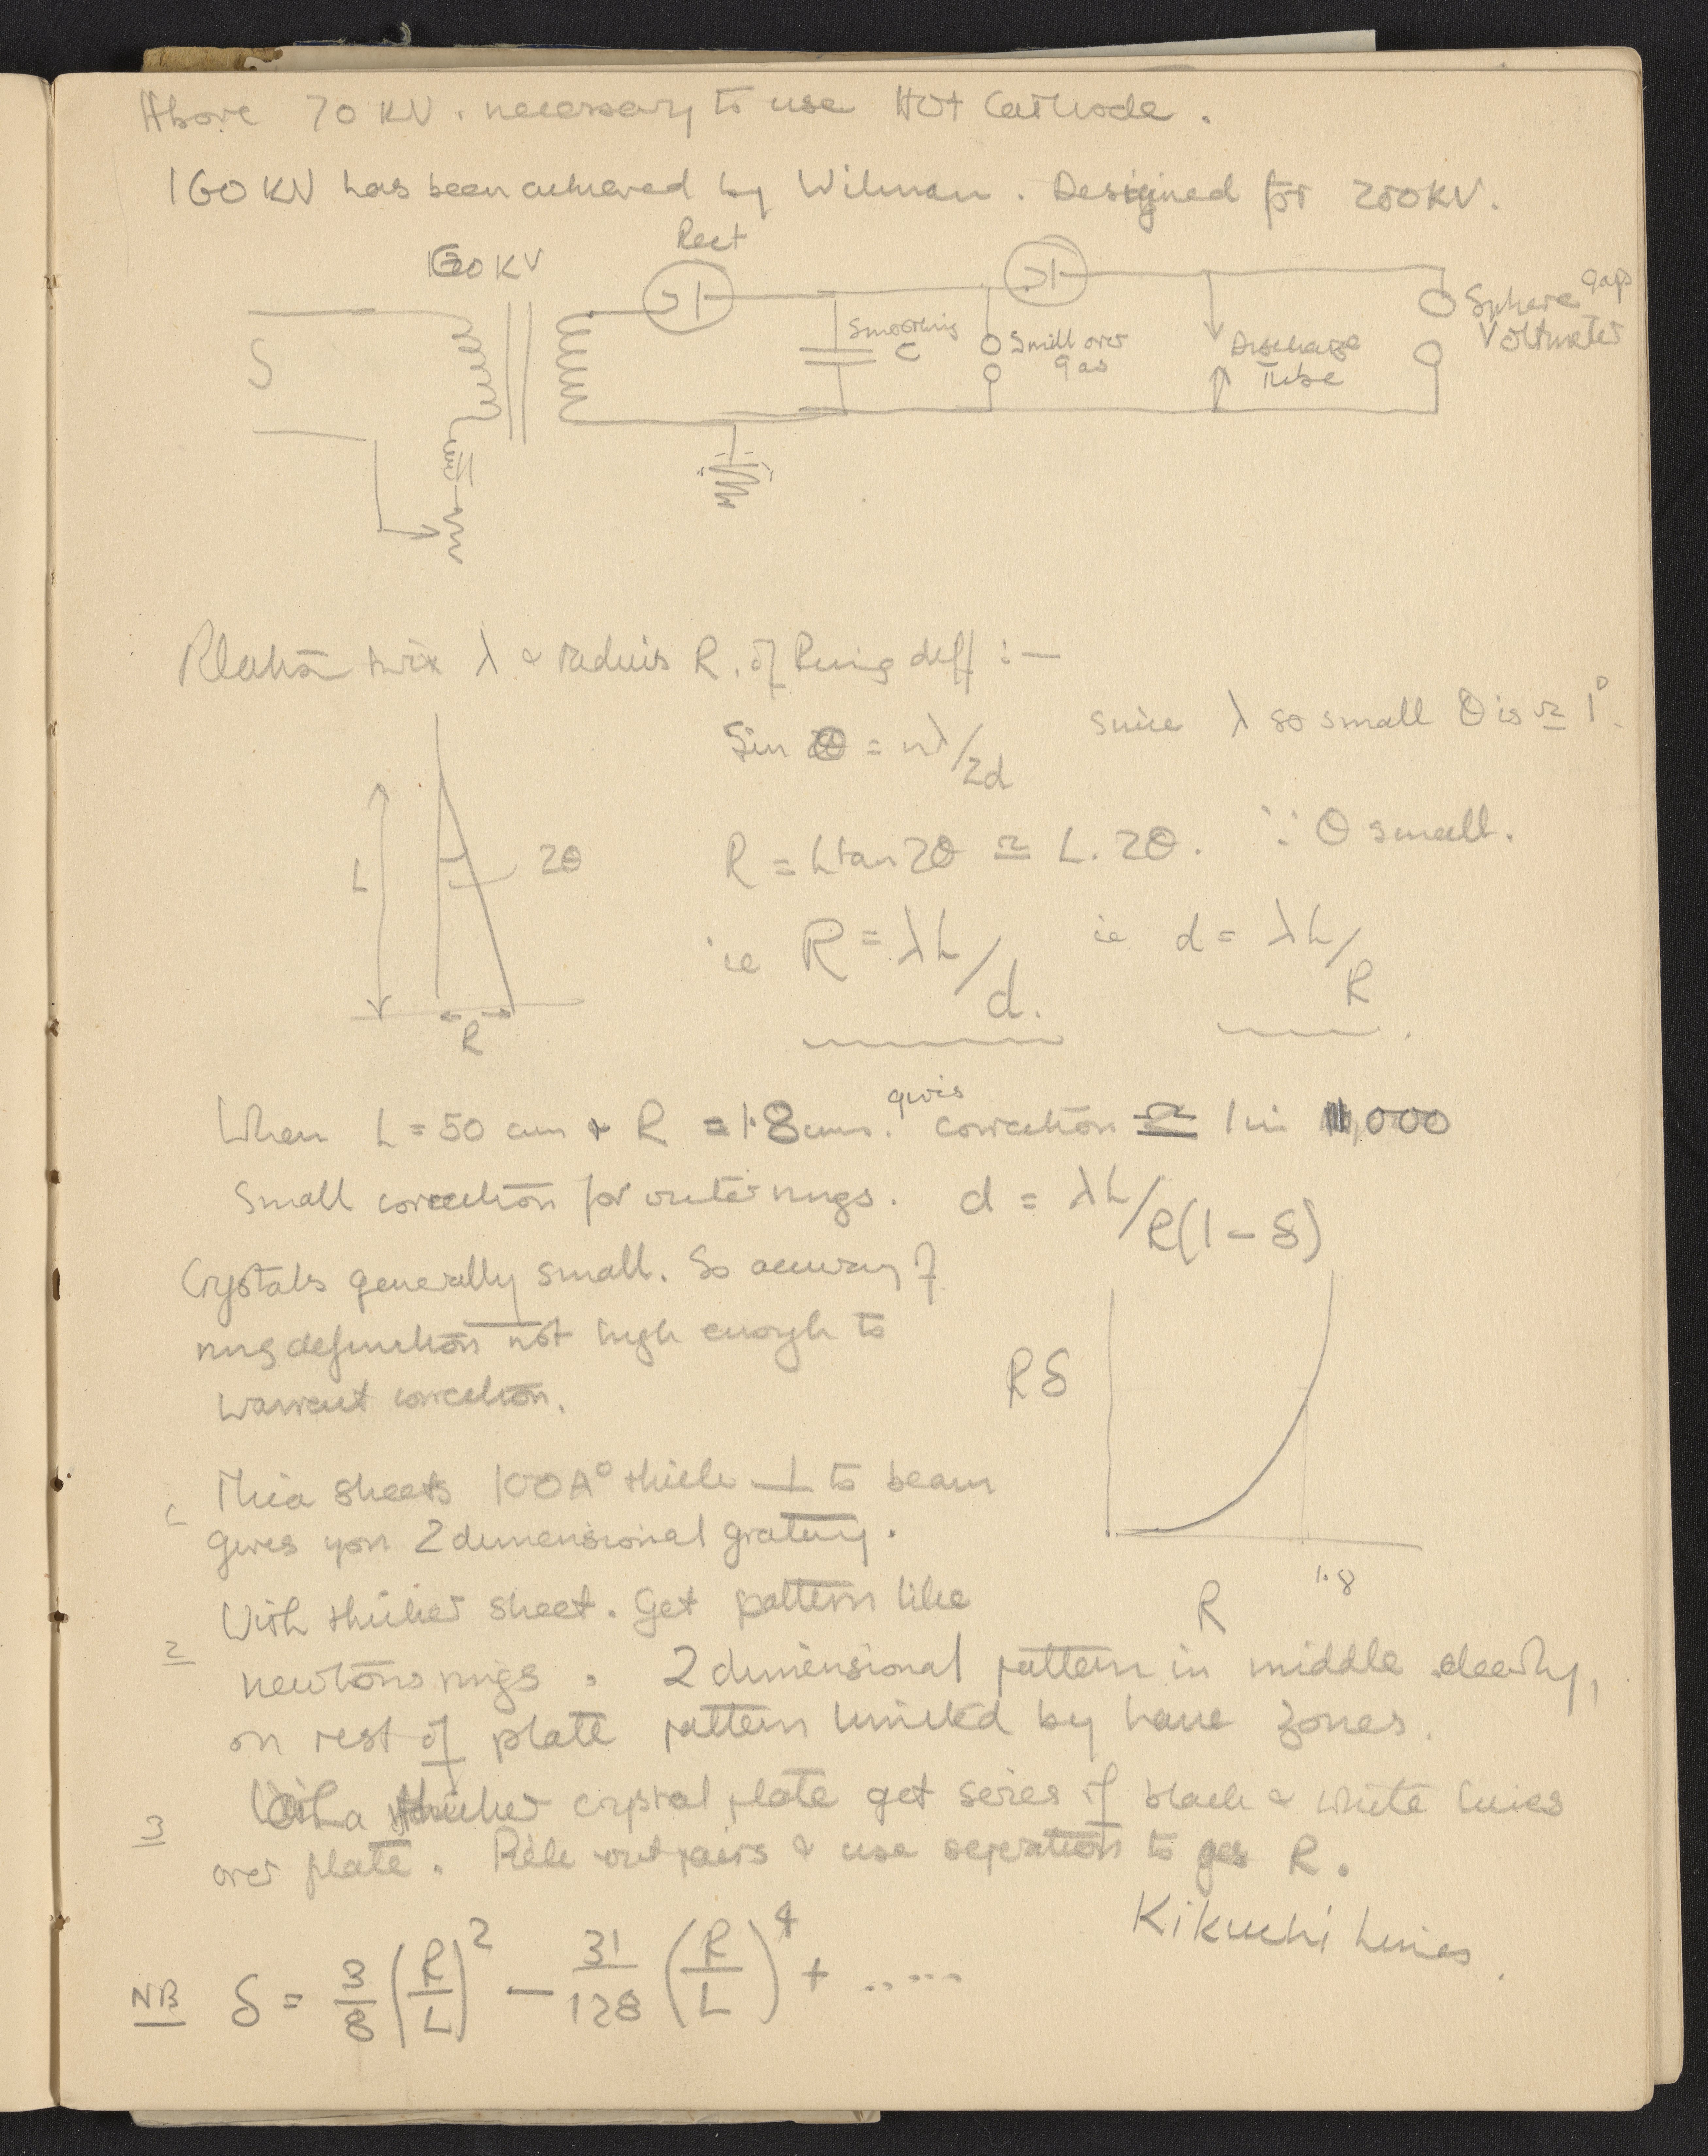 Above 70 KV. necessary to use Hot Cathode.
160 KV has been achieved by Wilman. Designed for 200KV.
Rect
160 KV
S
Smoothing
C
Spill over
gas
Discharge
Tube
Sphere gaps
Voltmeter
Relation twix λ & radius R. of Ring diff :—
Sin θ = nλ/2d since λ so small θ is ≃ 1°.
L
2θ
R = L tan 2θ ≃ L. 2θ. ∵ θ small.
ie R = λL/d. ie d = λL/R.
R
When L = 50 cm & R = 1.8 cms. gives correction ≃ 1 in 1,000
Small correction for outer rings. d = λL/R(1 - δ)
Crystals generally small. So accuracy of
ring definition not high enough to
warrant correction.
Rδ
R
1.8
1 Mica sheets 100A° thick ⊥ to beam
gives you 2 dimensional grating.
2 With thicker sheet. Get pattern like
newtons rings. 2 dimensional pattern in middle clearly,
on rest of plate pattern limited by Laue zones.
3 With a thicker crystal plate get series of black & white lines
over plate. Pick out pairs & use separation to get R.
Kikuchi Lines.
NB δ = 3/8 (R/L)² - 31/128 (R/L)⁴ + .....